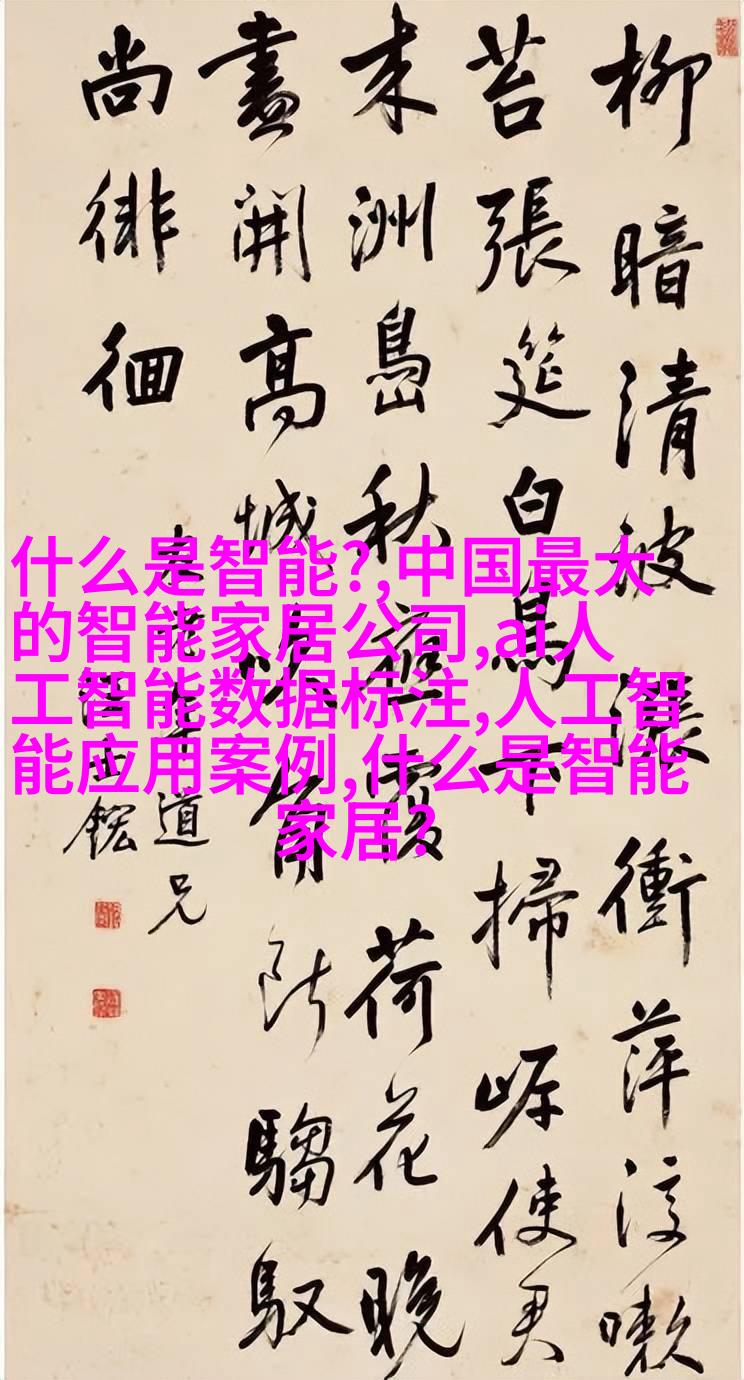 柳暗清波漲衝萍復嗽
苔張筵白鳥下掃岸使君
来洲島秋應沒荷花晚
盡開高城吹角斷騶馭
尚徘徊
老年道兄
什么是智能?,中国最大
的智能家居公司,ai人
工智能数据标注,人工智
能应用案例,什么是智能
家居?